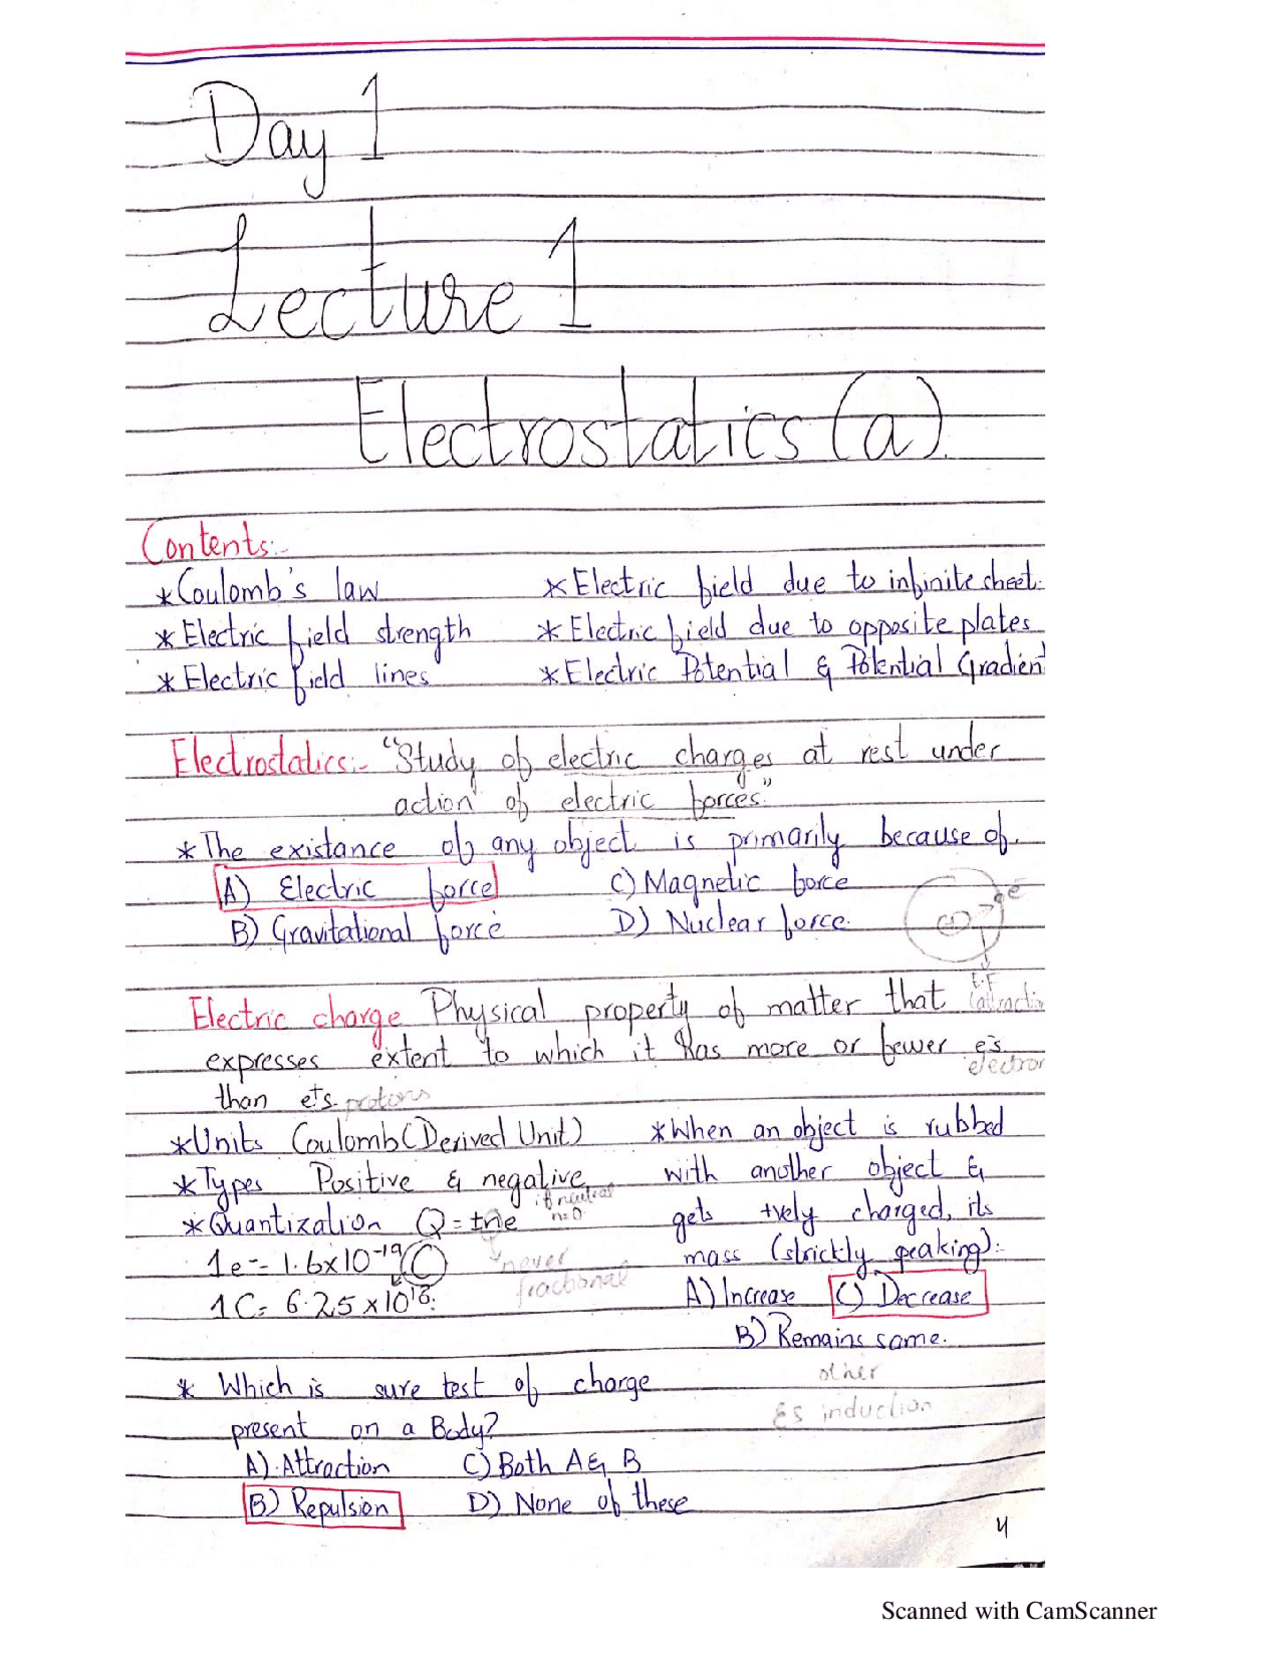 Day 1
Lecture 1
Electrostatics (a)
Contents:-
*Coulomb's law
*Electric field strength
*Electric field lines
*Electric field due to infinite sheet.
*Electric field due to opposite plates
*Electric Potential & Potential Gradient
Electrostatics:- "Study of electric charges at rest under
action of electric forces."
*The existance of any object is primarily because of.
A) Electric force
C) Magnetic force
B) Gravitational force
D) Nuclear force.
Electric charge Physical property of matter that
expresses extent to which it has more or fewer e⁻s
electron
than e⁺s. protons
*Units Coulomb (Derived Unit)
*Types Positive & negative
if neutral
n=0
*Quantization Q = ±ne
never
fractional
1e⁻ = 1.6x10⁻¹⁹ C
1C = 6.25x10¹⁸.
*When an object is rubbed
with another object &
gets +vely charged, its
mass (strickly speaking):-
A) Increase C) Decrease
B) Remains same.
other
ES induction
* Which is sure test of charge
present on a Body?
A) Attraction C) Both A & B
B) Repulsion D) None of these
4
Scanned with CamScanner